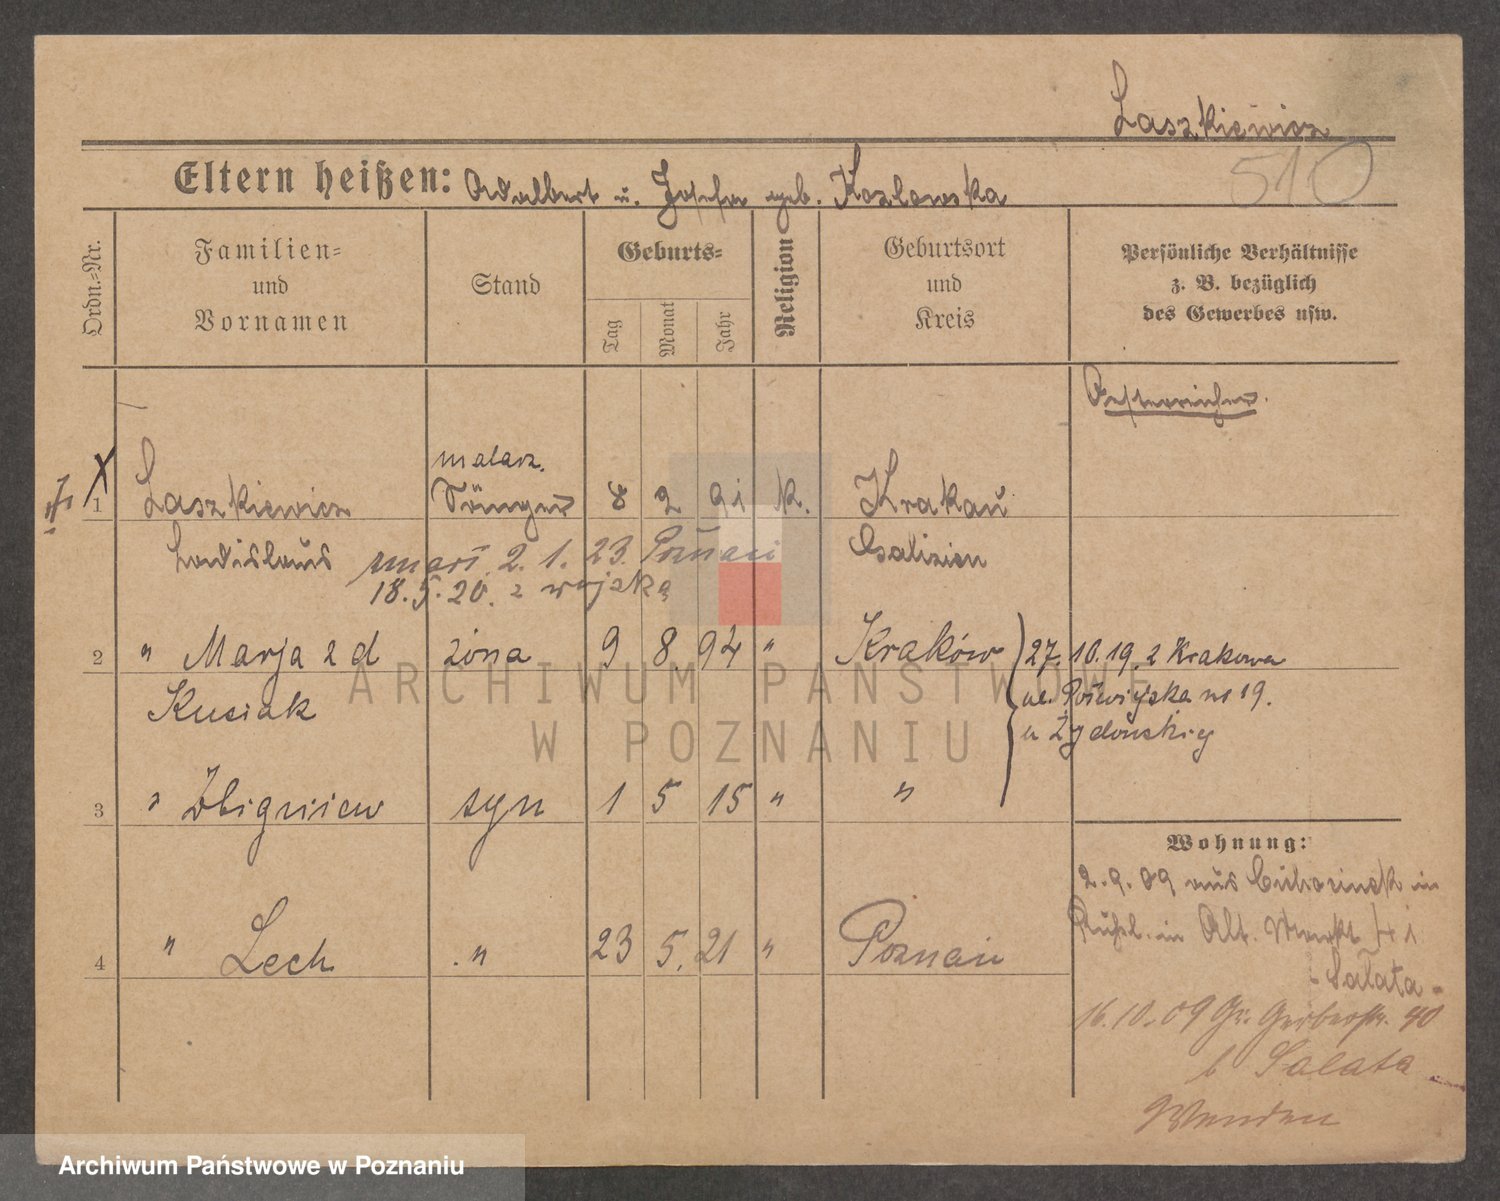 Laszkiewicz
510
Eltern heißen: Adalbert u. Josefa geb. Kozlowska
Ordn.=Nr.
Familien=
und
Vornamen
Stand
Geburts=
Tag
Monat
Jahr
Religion
Geburtsort
und
Kreis
Persönliche Verhältnisse
z. B. bezüglich
des Gewerbes usw.
Oesterreicher.
malarz.
1 Laszkiewicz Sänger 8 2 91 k. Krakau
Ladislaus zmarł 2. 1. 23. Poznań Galizien
18. 5. 20. z wojska
2 " Marja z d żona 9 8 94 " Kraków 27. 10. 19. z Krakowa
Kusiak ul. no 19.
u
3 " Zbigniew syn 1 5 15 " "
Wohnung:
2. 9. 09 aus in
in Alt. Markt 41
4 " Lech " 23 5. 21 " Poznań
- Sałata -
16. 10. 09 Gr. Gerberstr. 40
b Salata
Wenden
ARCHIWUM PAŃSTWOWE
W POZNANIU
Archiwum Państwowe w Poznaniu